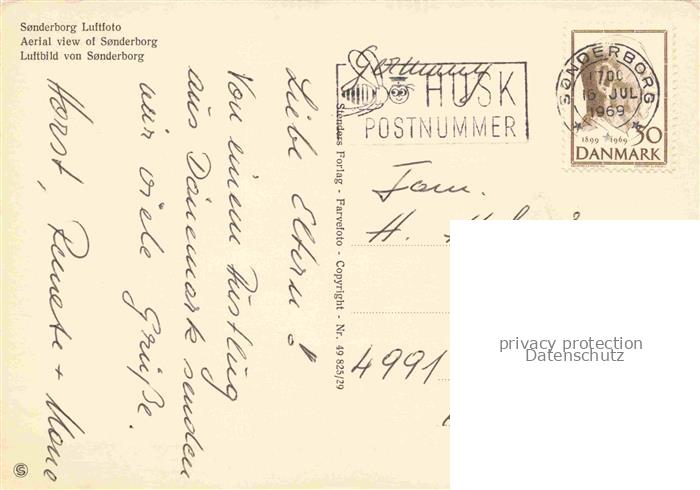 Sønderborg Luftfoto
Aerial view of Sønderborg
Luftbild von Sønderborg
Liebe Eltern!
Von einem Ausflug
aus Dänemark senden
wir viele Grüße.
Horst, Renate +
Stenders Forlag - Farvefoto - Copyright - Nr. 49 825/29
Germany
HUSK
POSTNUMMER
SØNDERBORG
1700
16 JUL
1969
1899 1969
50
DANMARK
Fam.
H.
4991
privacy protection
Datenschutz